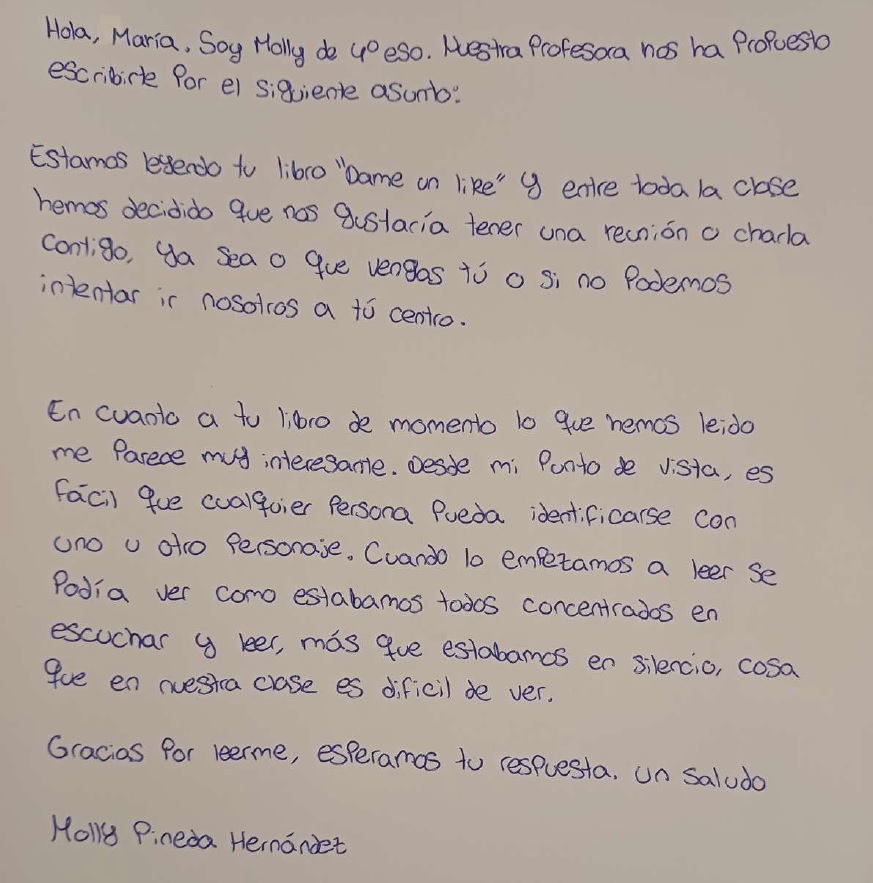 Hola, María. Soy Molly de 4º eso. Nuestra Profesora nos ha Propuesto
escribirte Por el siguiente asunto:
Estamos leyendo tu libro "Dame un like" y entre toda la clase
hemos decidido que nos gustaría tener una reunión o charla
contigo, ya sea o que vengas tú o si no Podemos
intentar ir nosotros a tú centro.
En cuanto a tu libro de momento lo que hemos leido
me Parece muy interesante. Desde mi Punto de vista, es
fácil que cualquier Persona Pueda identificarse con
uno u otro Personaje. Cuando lo empezamos a leer se
Podía ver como estabamos todos concentrados en
escuchar y leer, más que estabamos en silencio, cosa
que en nuestra clase es dificil de ver.
Gracias Por leerme, esperamos tu respuesta. un saludo
Molly Pineda Hernández